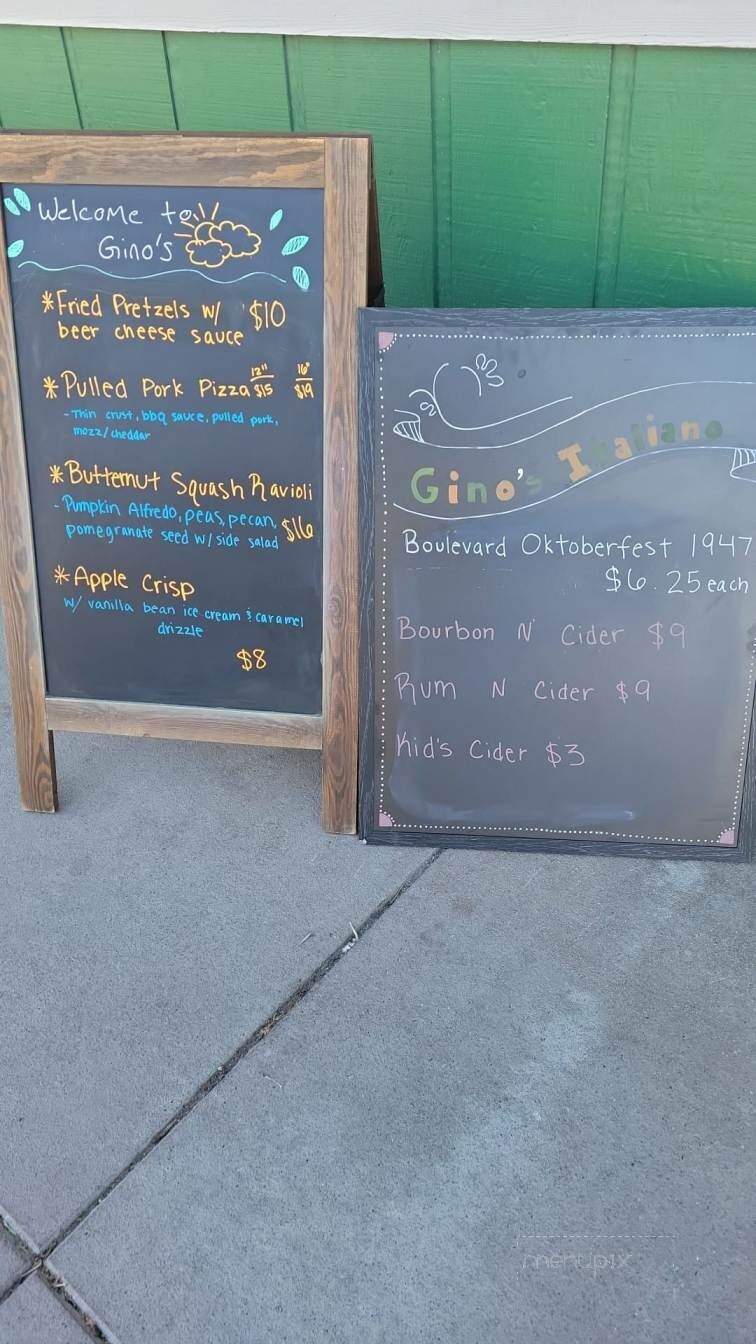 Welcome to
Gino's
*Fried Pretzels w/ $10
beer cheese sauce
*Pulled Pork Pizza 12" $15 16" $19
-Thin crust, bbq sauce, pulled pork,
mozz/cheddar
*Butternut Squash Ravioli
-Pumpkin Alfredo, peas, pecan,
pomegranate seed w/ side salad $16
*Apple Crisp
w/ vanilla bean ice cream & caramel
drizzle
$8
Gino's Italiano
Boulevard Oktoberfest 1947
$6.25 each
Bourbon N' Cider $9
Rum N Cider $9
Kid's Cider $3
menupix